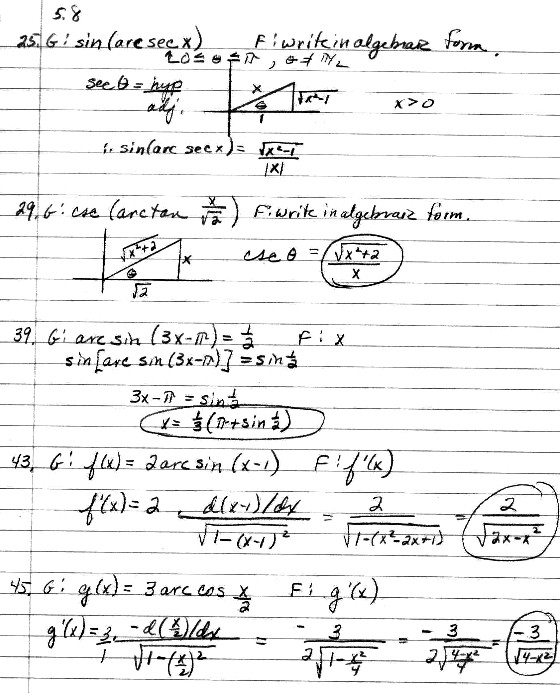 5.8
25. G: sin(arc sec x) F: write in algebraic form.
↑ 0 ≤ θ ≤ π, θ ≠ π/2
sec θ = hyp/adj. x √x²-1 θ 1 x > 0
∴ sin(arc sec x) = √x²-1 / |x|
29. G: csc (arctan x/√2) F: write in algebraic form.
√x²+2 x θ √2 csc θ = √x²+2 / x
39. G: arc sin (3x-π) = 1/2 F: x
sin[arc sin (3x-π)] = sin 1/2
3x-π = sin 1/2
x = 1/3 (π + sin 1/2)
43. G: f(x) = 2 arc sin (x-1) F: f'(x)
f'(x) = 2 · d(x-1)/dx / √1-(x-1)² = 2 / √1-(x²-2x+1) = 2 / √2x-x²
45. G: g(x) = 3 arc cos x/2 F: g'(x)
g'(x) = 3/1 · -d(x/2)/dx / √1-(x/2)² = - 3 / 2√1-x²/4 = - 3 / 2√4-x²/4 = -3 / √4-x²